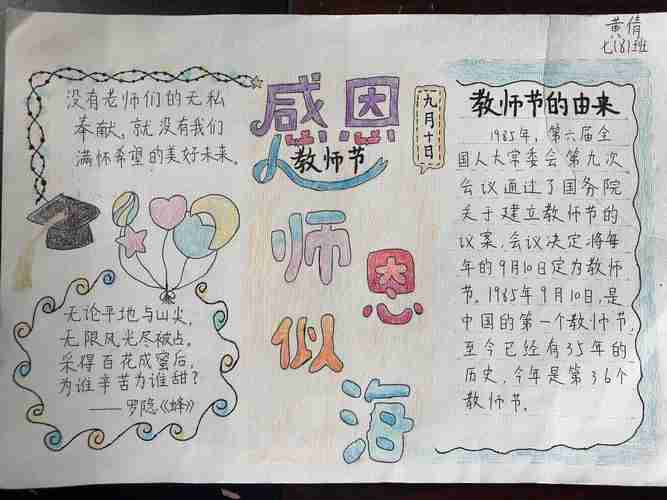 黄倩
七(8)班
没有老师们的无私
奉献,就没有我们
满怀希望的美好未来。
感恩
教师节
九月十日
师恩似海
无论平地与山尖,
无限风光尽被占,
采得百花成蜜后,
为谁辛苦为谁甜?
——罗隐《蜂》
教师节的由来
1985年,第六届全
国人大常委会第九次
会议通过了国务院
关于建立教师节的
议案,会议决定将每
年的9月10日定为教师
节。1985年9月10日,是
中国的第一个教师节,
至今已经有35年的
历史,今年是第36个
教师节。